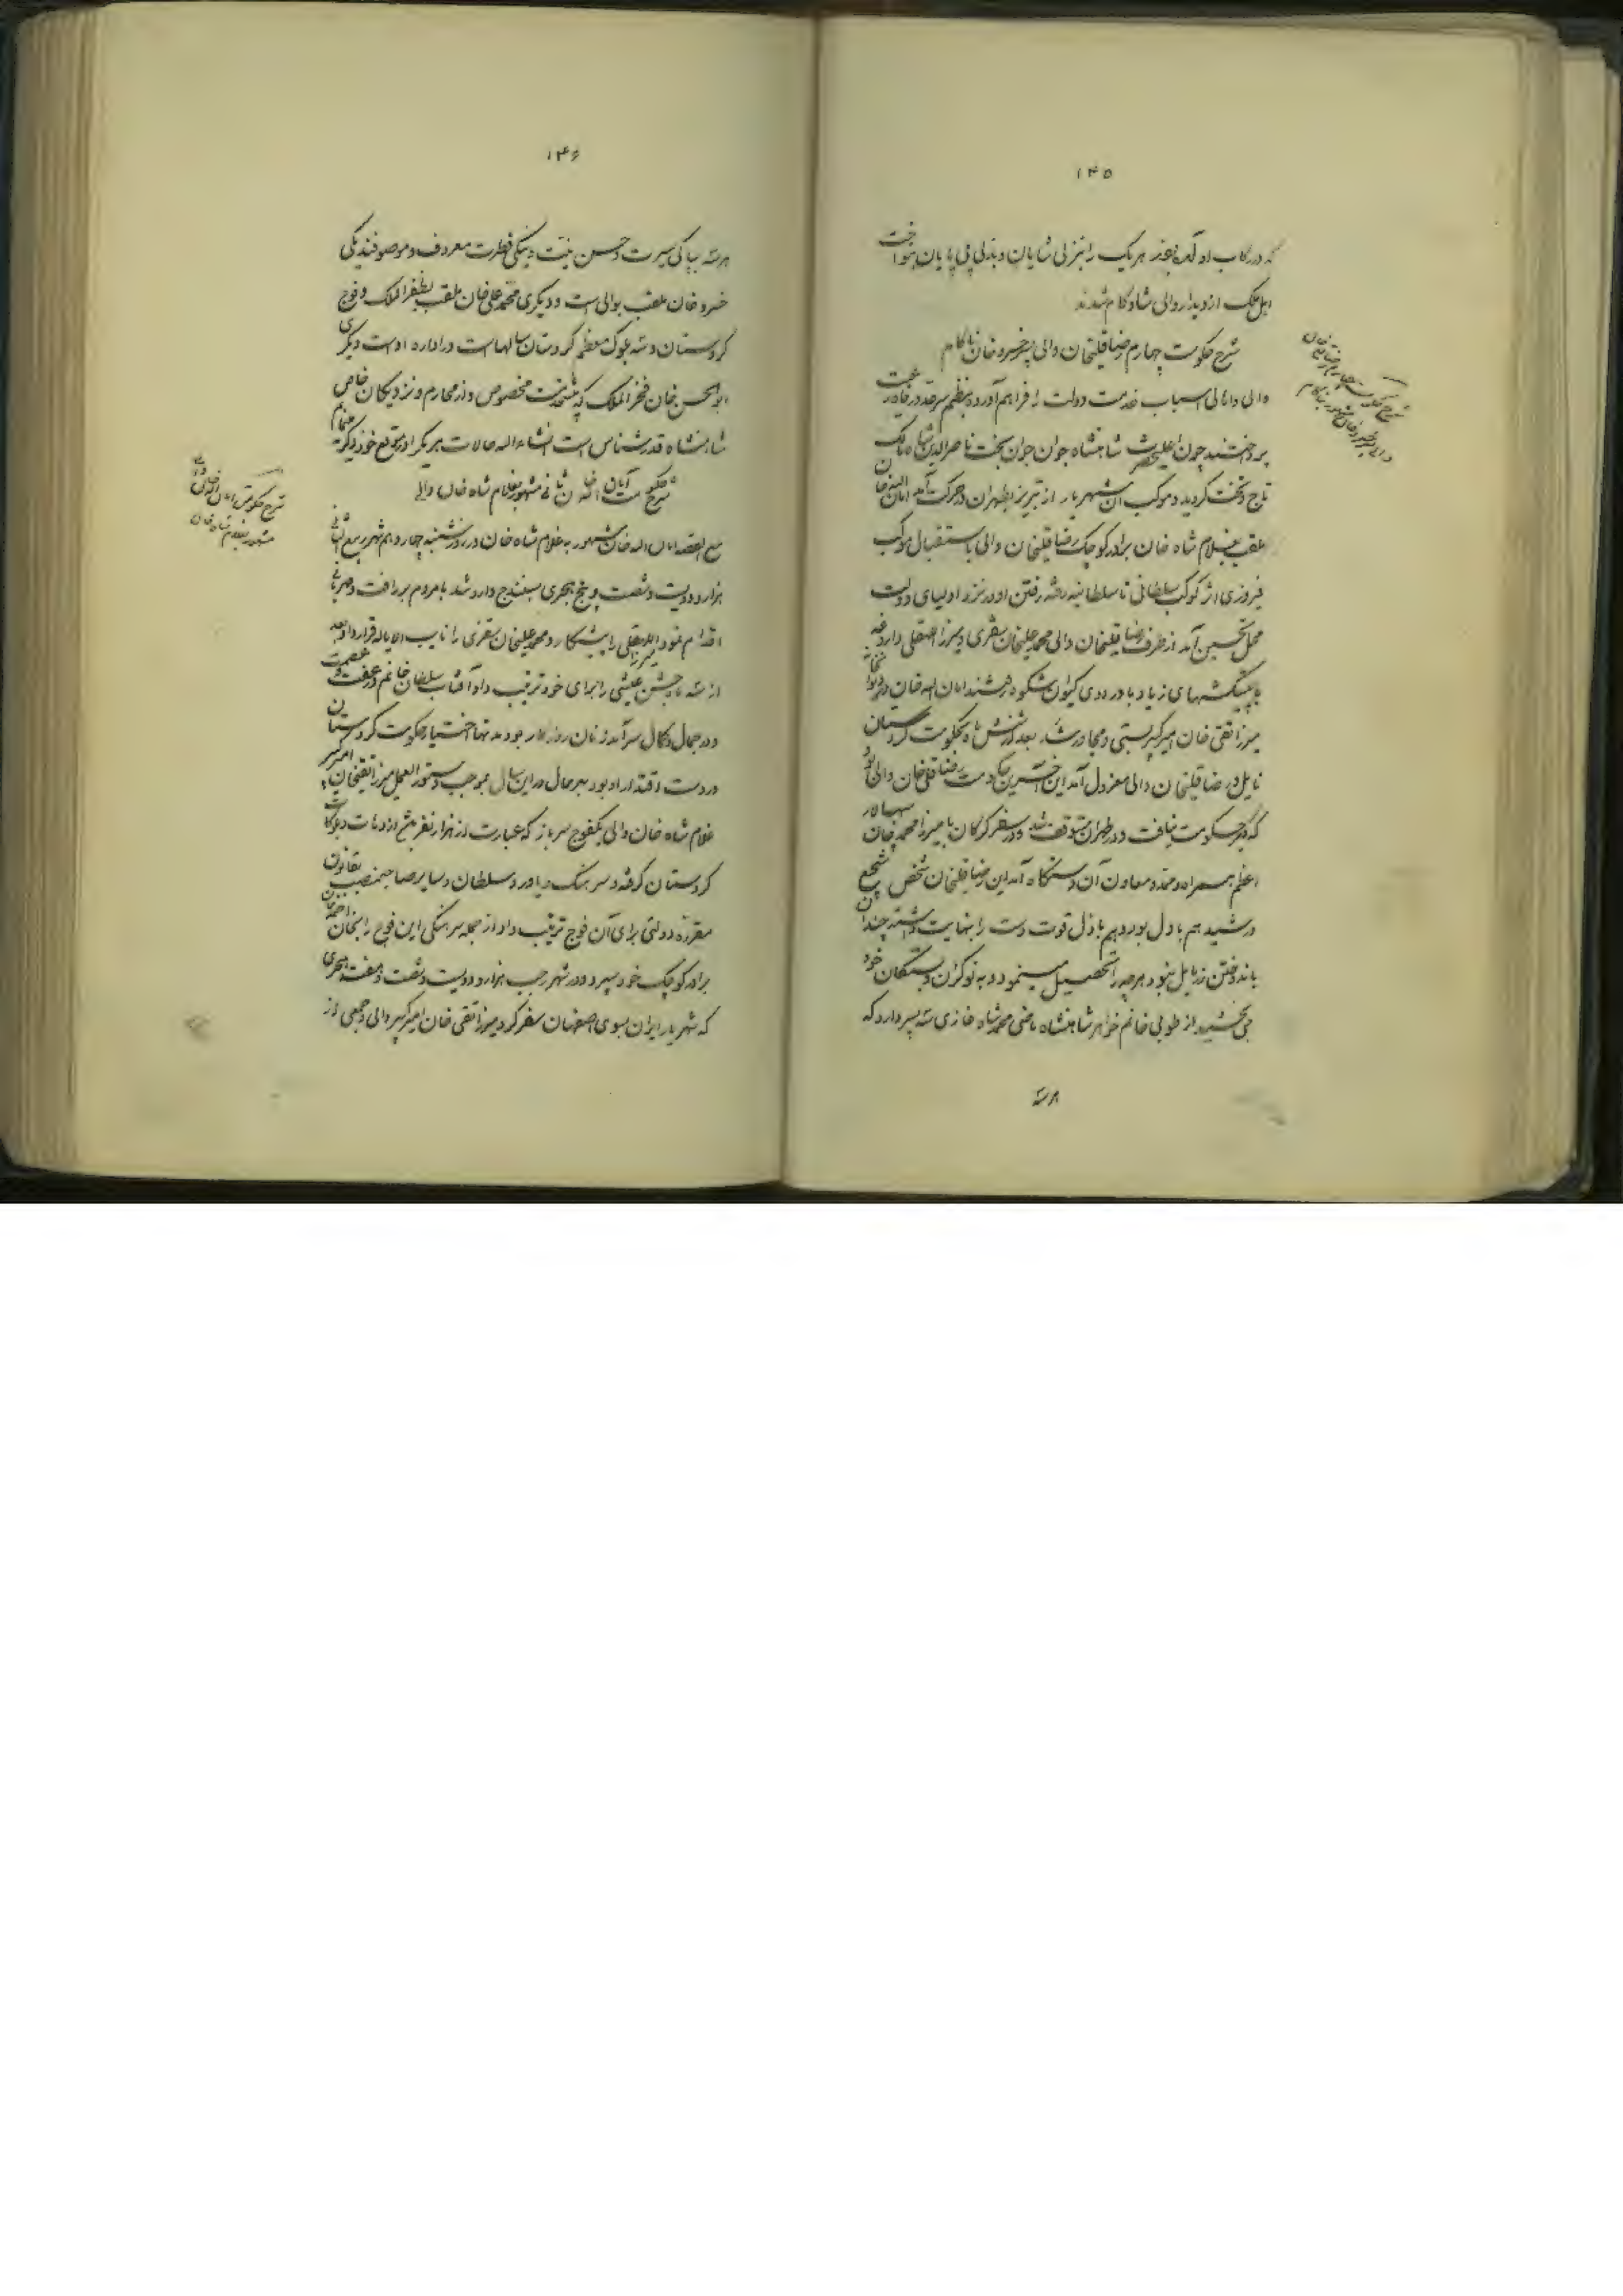 ۱۴۵
که در رکاب او آمده بودند هر یک را بنزلی شایان و بذلی بی پایان بنواخت
اهل ملک از دیدار والی شادکام شدند
شرح حکومت چهارم رضاقلیخان والی پسر خسرو خان ناکام
والی و اهالی اسباب خدمت دولت را فراهم آورده بنظم سرحد و رفاه رعیت
پرداختند چون اعلیحضرت شاهنشاه جوان جوان بخت ناصرالدین شاه مالک
تاج و تخت گردید و موکب آن شهریار از تبریز بطهران در حرکت آمد امان اله خان
ملقب بغلام شاه خان برادر کوچک رضاقلیخان والی باستقبال موکب
فیروزی اثر کوکب سلطانی تا سلطانیه رفته رفتن او در نزد اولیای دولت
محل تحسین آمد از طرف رضاقلیخان والی محمد علیخان سقزی و میرزا
با پیشکشهای زیاد باردوی کیوان شکوه رفتند امان اله خان در
میرزا تقی خان امیر کبیر بستی و مجاور شد بعد از شش ماه بحکومت کردستان
نایل و رضاقلیخان والی معزول آمد این آخرین حکومت رضاقلی خان والی بود
که دیگر حکومت نیافت و در طهران متوقف شد و در سفر کرکان با میرزا محمد خان سپهسالار
اعظم همراه و ممد و معاون آن دستگاه آمد این رضاقلیخان شخص شجیع
و رشید هم با دل بود و هم باذل قوت دست را بنهایت داشته چندان
باندوختن زر مایل نبود هر چه را تحصیل مینمود و به نوکران و بستگان خود
می بخشید از طوبی خانم خواهر شاهنشاه ماضی محمد شاه غازی سه پسر دارد که
هر سه
شرح حکومت چهارم رضاقلی خان
والی پسر خسرو خان مشهور بناکام
۱۴۶
هر سه بپاکی سیرت و حسن نیت و نیکی فطرت معروف و موصوفند یکی
خسرو خان ملقب بوالی است و دیگری محمد علی خان ملقب بظفر الملک و فوج
کردستان و سه بلوک معظم کردستان سالهاست در اداره اوست دیگری
ابوالحسن خان فخر الملک که پیشخدمت مخصوص و از محارم و نزدیکان خاص
شاهنشاه قدرشناس است انشاء اله حالات هر یک را در موقع خود
شرح حکومت امان اله خان ثانی مشهور بغلام شاه خان والی
مع القصه امان اله خان مشهور به غلام شاه خان در روز شنبه چهاردهم شهر ربیع الثانی
هزار و دویست و شصت و پنج هجری بسنندج وارد شد با مردم بر رأفت و مهربانی
اقدام نمود میرزا را پیشکار و محمد علیخان سقزی را نایب الایاله قرار داد بعد
از سه ماه جشن عیشی را برای خود ترتیب داد آفتاب سلطان خانم در عفت و عصمت
و در جمال و کمال سرآمد زنان روزگار بود مدتها اختیار حکومت کردستان
در دست اقتدار او بود بهر حال در این سال بموجب دستور العمل میرزا تقیخان امیر کبیر
غلام شاه خان والی یکفوج سرباز که عبارت از هزار نفر باشد از دهات و بلوکات
کردستان گرفته و سرهنگ و یاور و سلطان و سایر صاحبمنصب بقانون
مقرره دولتی برای آن فوج ترتیب داد از جمله سرهنگی این فوج را
برادر کوچک خود سپرد و در شهر رجب هزار و دویست و شصت و هفت هجری
که شهریار ایران بسوی اصفهان سفر کرد میرزا تقی خان امیر کبیر والی و جمعی از
شرح حکومت امان اله خان والی
مشهور بغلام شاه خان